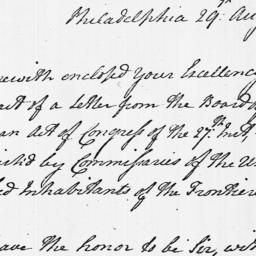 Philadelphia 29th Aug
ewith enclosed your Excellency
act of a Letter from the Board of
an Act of Congress of the 27th Inst.
by Commissaries of the U
ed Inhabitants of the Frontier
ave the honor to be Sir, with